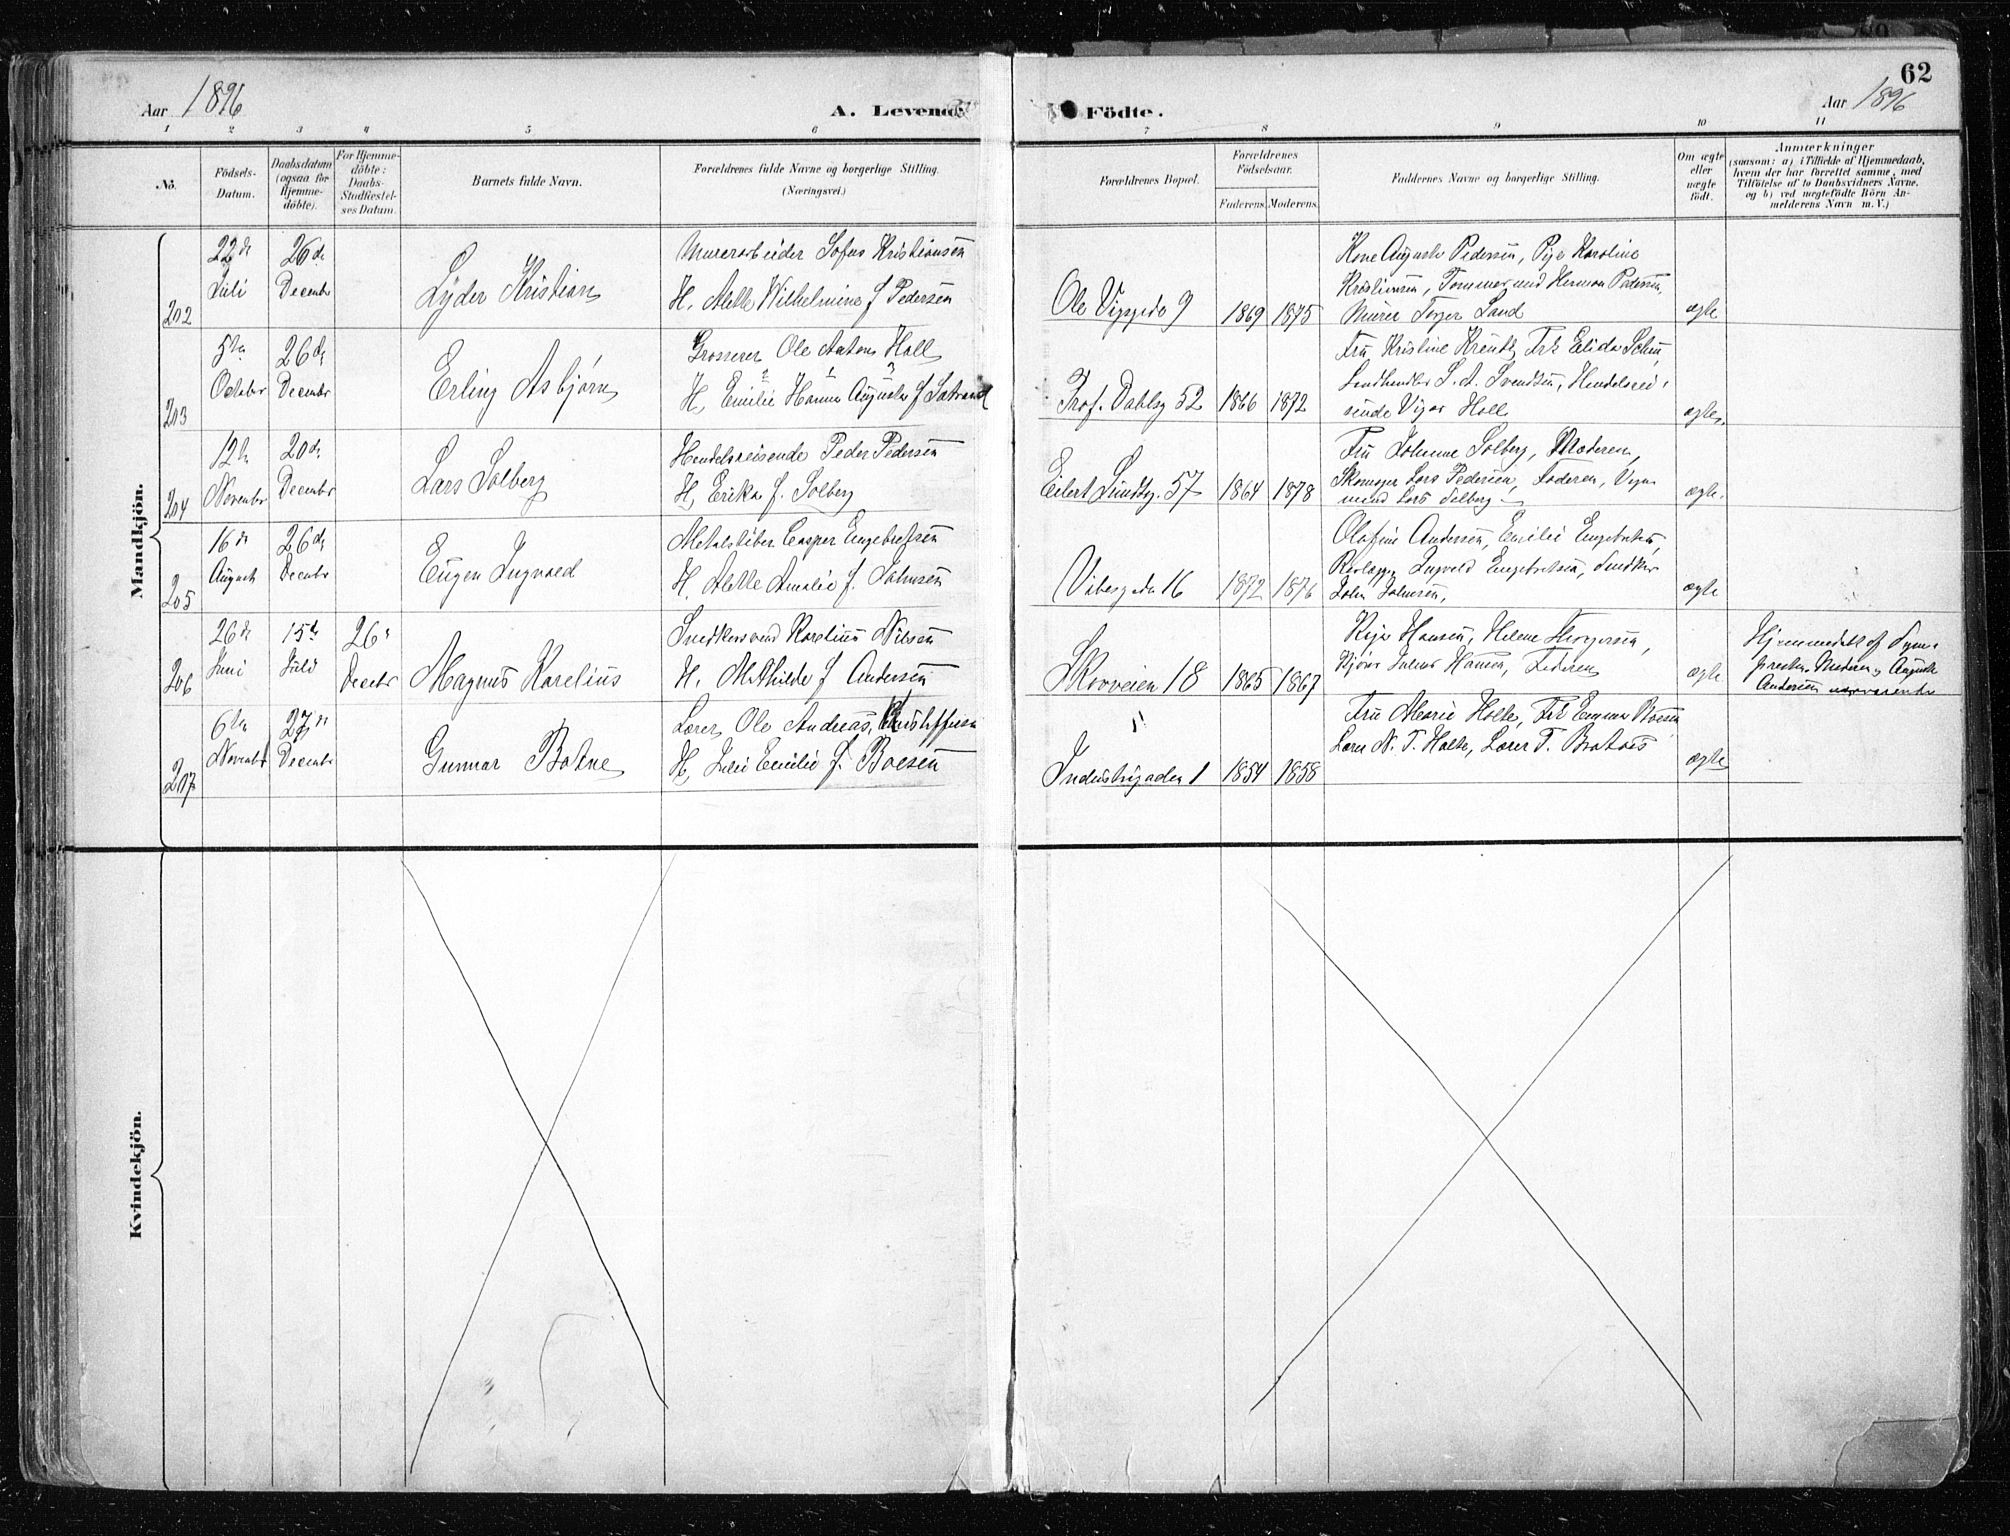 62
Aar 1896
A. Levende
Födte.
Aar 1896
1 2 3 4 5 6 7 8 9 10 11
No.
Födsels-
Datum.
Daabsdatum
(ogsaa for
Hjemme-
döbte).
For Hjemme-
döbte:
Daabs-
Stadfæstel-
ses Datum.
Barnets fulde Navn.
Forældrenes fulde Navne og borgerlige Stilling.
(Næringsvei.)
Forældrenes Bopæl.
Forældrenes
Födselsaar.
Faderens. Moderens.
Faddernes Navne og borgerlige Stilling.
Om ægte
eller
uægte
födt.
Anmærkninger
(saasom: a) i Tilfælde af Hjemmedaab,
hvem der har forrettet samme, med
Tilföielse af to Daabsvidners Navne,
og b) ved uægtefödte Börn An-
melderens Navn m. V.)
Mandkjön.
202
22de
Juli
26de
Decembr
Lyder Kristian
Murerarbeider Sofus Kristiansen
H. Alette Wilhelmine f Pedersen
Ole Viggsgde 9
1869 1875
Kone Auguste Pedersen, Pige Karoline
Kristiansen, Tømmermand Herman Pedersen,
Murer Torger Sand
ægte
203
5te
October
26de
Decembr
Erling Asbjørn
Grosserer Ole Anton Holl
2 1 3
H. Emilie Hanna Augusta f
Prof. Dahlsg 52
1866 1872
Fru Kristine Frk Elida
S. A. Svendsen, Handelsrei-
sende Holl
ægte.
204
12te
Novembr
20de
Decembr
Lars Solberg
Handelsreisende Peder Pedersen
H. Erika f. Solberg
Eilert Sundtsg. 57
1864 1878
Fru Johanne Solberg, Moderen,
Skomager Lars Pedersen, Faderen, Vogn-
mand Lars Solberg
ægte.
205
16de
August
26de
Decembr
Eugen Ingvald
Metalstøber Casper Engebretsen
H. Alette Amalie f. Johnsen
Vibesgaden 16
1872 1876
Olafine Andersen, Emilie Engebretsen,
Ingvald Engebretsen, Snedker
John Johnsen,
ægte
206
26de
Juni
15de
Juli
26de
Decebr
Magnus Karelius
Snedkersvend Karelius Nilsen
H. Mathilde f Andersen
Skovveien 18
1865 1867
Kaja Hansen, Helene
Julius Hansen, Faderen
ægte
Hjemmedøbt af Sogne-
presten. Moderen, Auguste
Andersen nærværende
207
6te
Novembr
27de
Decembr
Gunnar Botne
Lærer Ole Andreas Kristoffersen
H. Julie Emilie f. Boesen
Industrigaden 1
1854 1858
Fru Marie Holte, Frk Emma Boesen
Lærer N. T. Holte, Lærer T.
ægte
Kvindekjön.